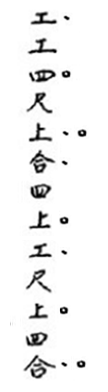 工、
工
四。
尺
上、。
合、
四
上。
工、
尺
上。
四
合、。